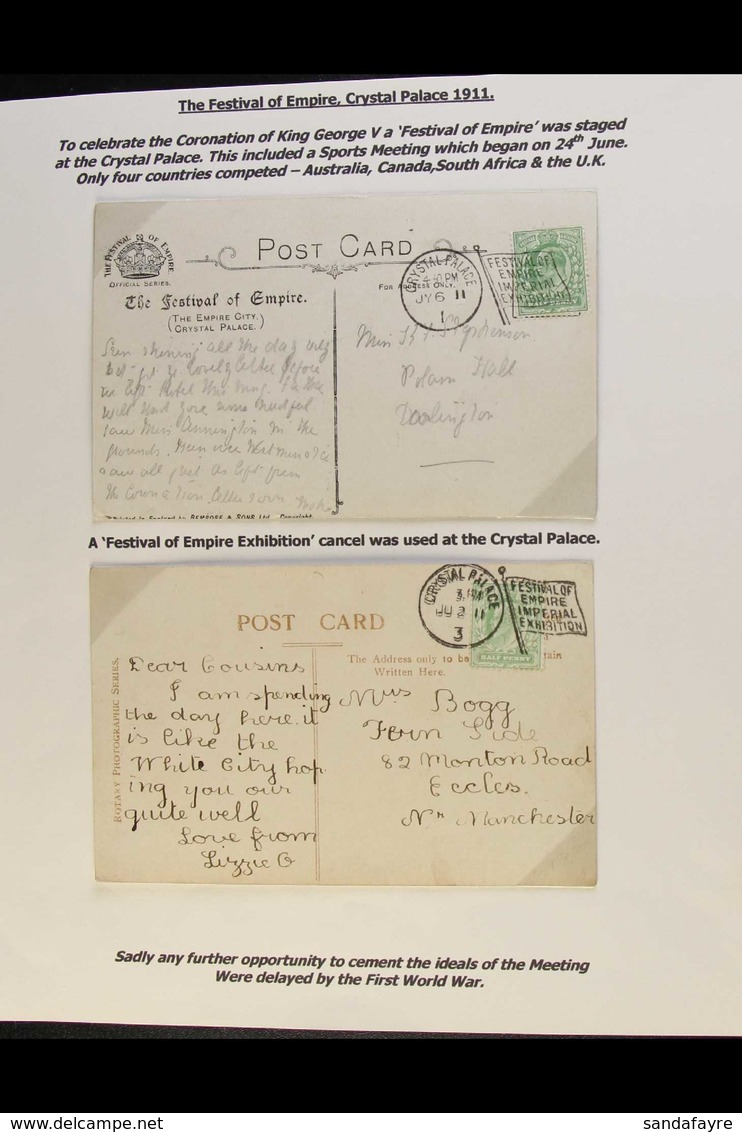 The Festival of Empire, Crystal Palace 1911.
To celebrate the Coronation of King George V a 'Festival of Empire' was staged
at the Crystal Palace. This included a Sports Meeting which began on 24th June.
Only four countries competed – Australia, Canada,South Africa & the U.K.
THE FESTIVAL OF EMPIRE.
OFFICIAL SERIES.
POST CARD
FOR ADDRESS ONLY.
The Festival of Empire.
(THE EMPIRE CITY,
CRYSTAL PALACE.)
CRYSTAL PALACE
PM
JY 6 11
1
FESTIVAL OF
EMPIRE
IMPERIAL
EXHIBITION
all the day
before
will
saw Miss in the
grounds.
saw all just as left from
the Crown
Miss Stephenson
Polam Hall
Darlington
Printed in England by BEMROSE & SONS Ltd. Copyright
A 'Festival of Empire Exhibition' cancel was used at the Crystal Palace.
POST CARD
ROTARY PHOTOGRAPHIC SERIES.
The Address only to be
Written Here.
tain
CRYSTAL PALACE
JU 2 11
3
FESTIVAL OF
EMPIRE
IMPERIAL
EXHIBITION
HALF PENNY
Dear Cousins
I am spending
the day here. it
is like the
White City hop
ing you our
quite well
Love from
Lizzie G
Mrs Bogg
Fern Side
82 Monton Road
Eccles.
Nr Manchester
Sadly any further opportunity to cement the ideals of the Meeting
Were delayed by the First World War.
delcampe.net
sandafayre